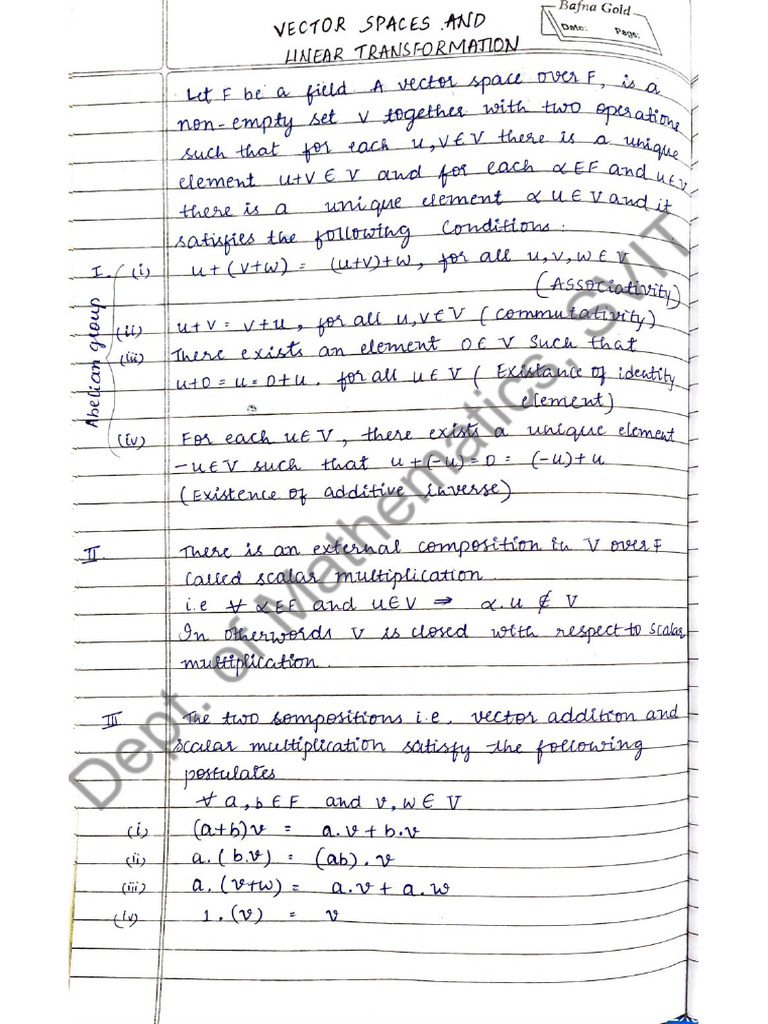 VECTOR SPACES AND
LINEAR TRANSFORMATION
Bafna Gold
Date: Page:
Let F be a field. A vector space over F, is a
non-empty set V together with two operations
such that for each u,v∈V there is a unique
element u+v∈V and for each α∈F and u∈V
there is a unique element αu∈V and it
satisfies the following conditions:
Abelian group
I. (i) u+(v+w) = (u+v)+w, for all u,v,w∈V
(Associativity)
(ii) u+v = v+u, for all u,v∈V (commutativity)
(iii) There exists an element 0∈V such that
u+0 = u = 0+u. for all u∈V (Existance of identity
element)
(iv) For each u∈V, there exists a unique element
-u∈V such that u+(-u)=0= (-u)+u
(Existence of additive inverse)
II There is an external composition in V over F
called scalar multiplication.
i.e ∀ α∈F and u∈V ⇒ α.u ∉ V
In otherwords V is closed with respect to scalar
multiplication.
III The two sompositions i.e. vector addition and
scalar multiplication satisfy the following
postulates
∀ a,b∈F and v,w∈V
(i) (a+b)v = a.v+b.v
(ii) a.(b.v) = (ab).v
(iii) a.(v+w) = a.v+a.w
(iv) 1.(v) = v
Dept. of Mathematics, SVIT